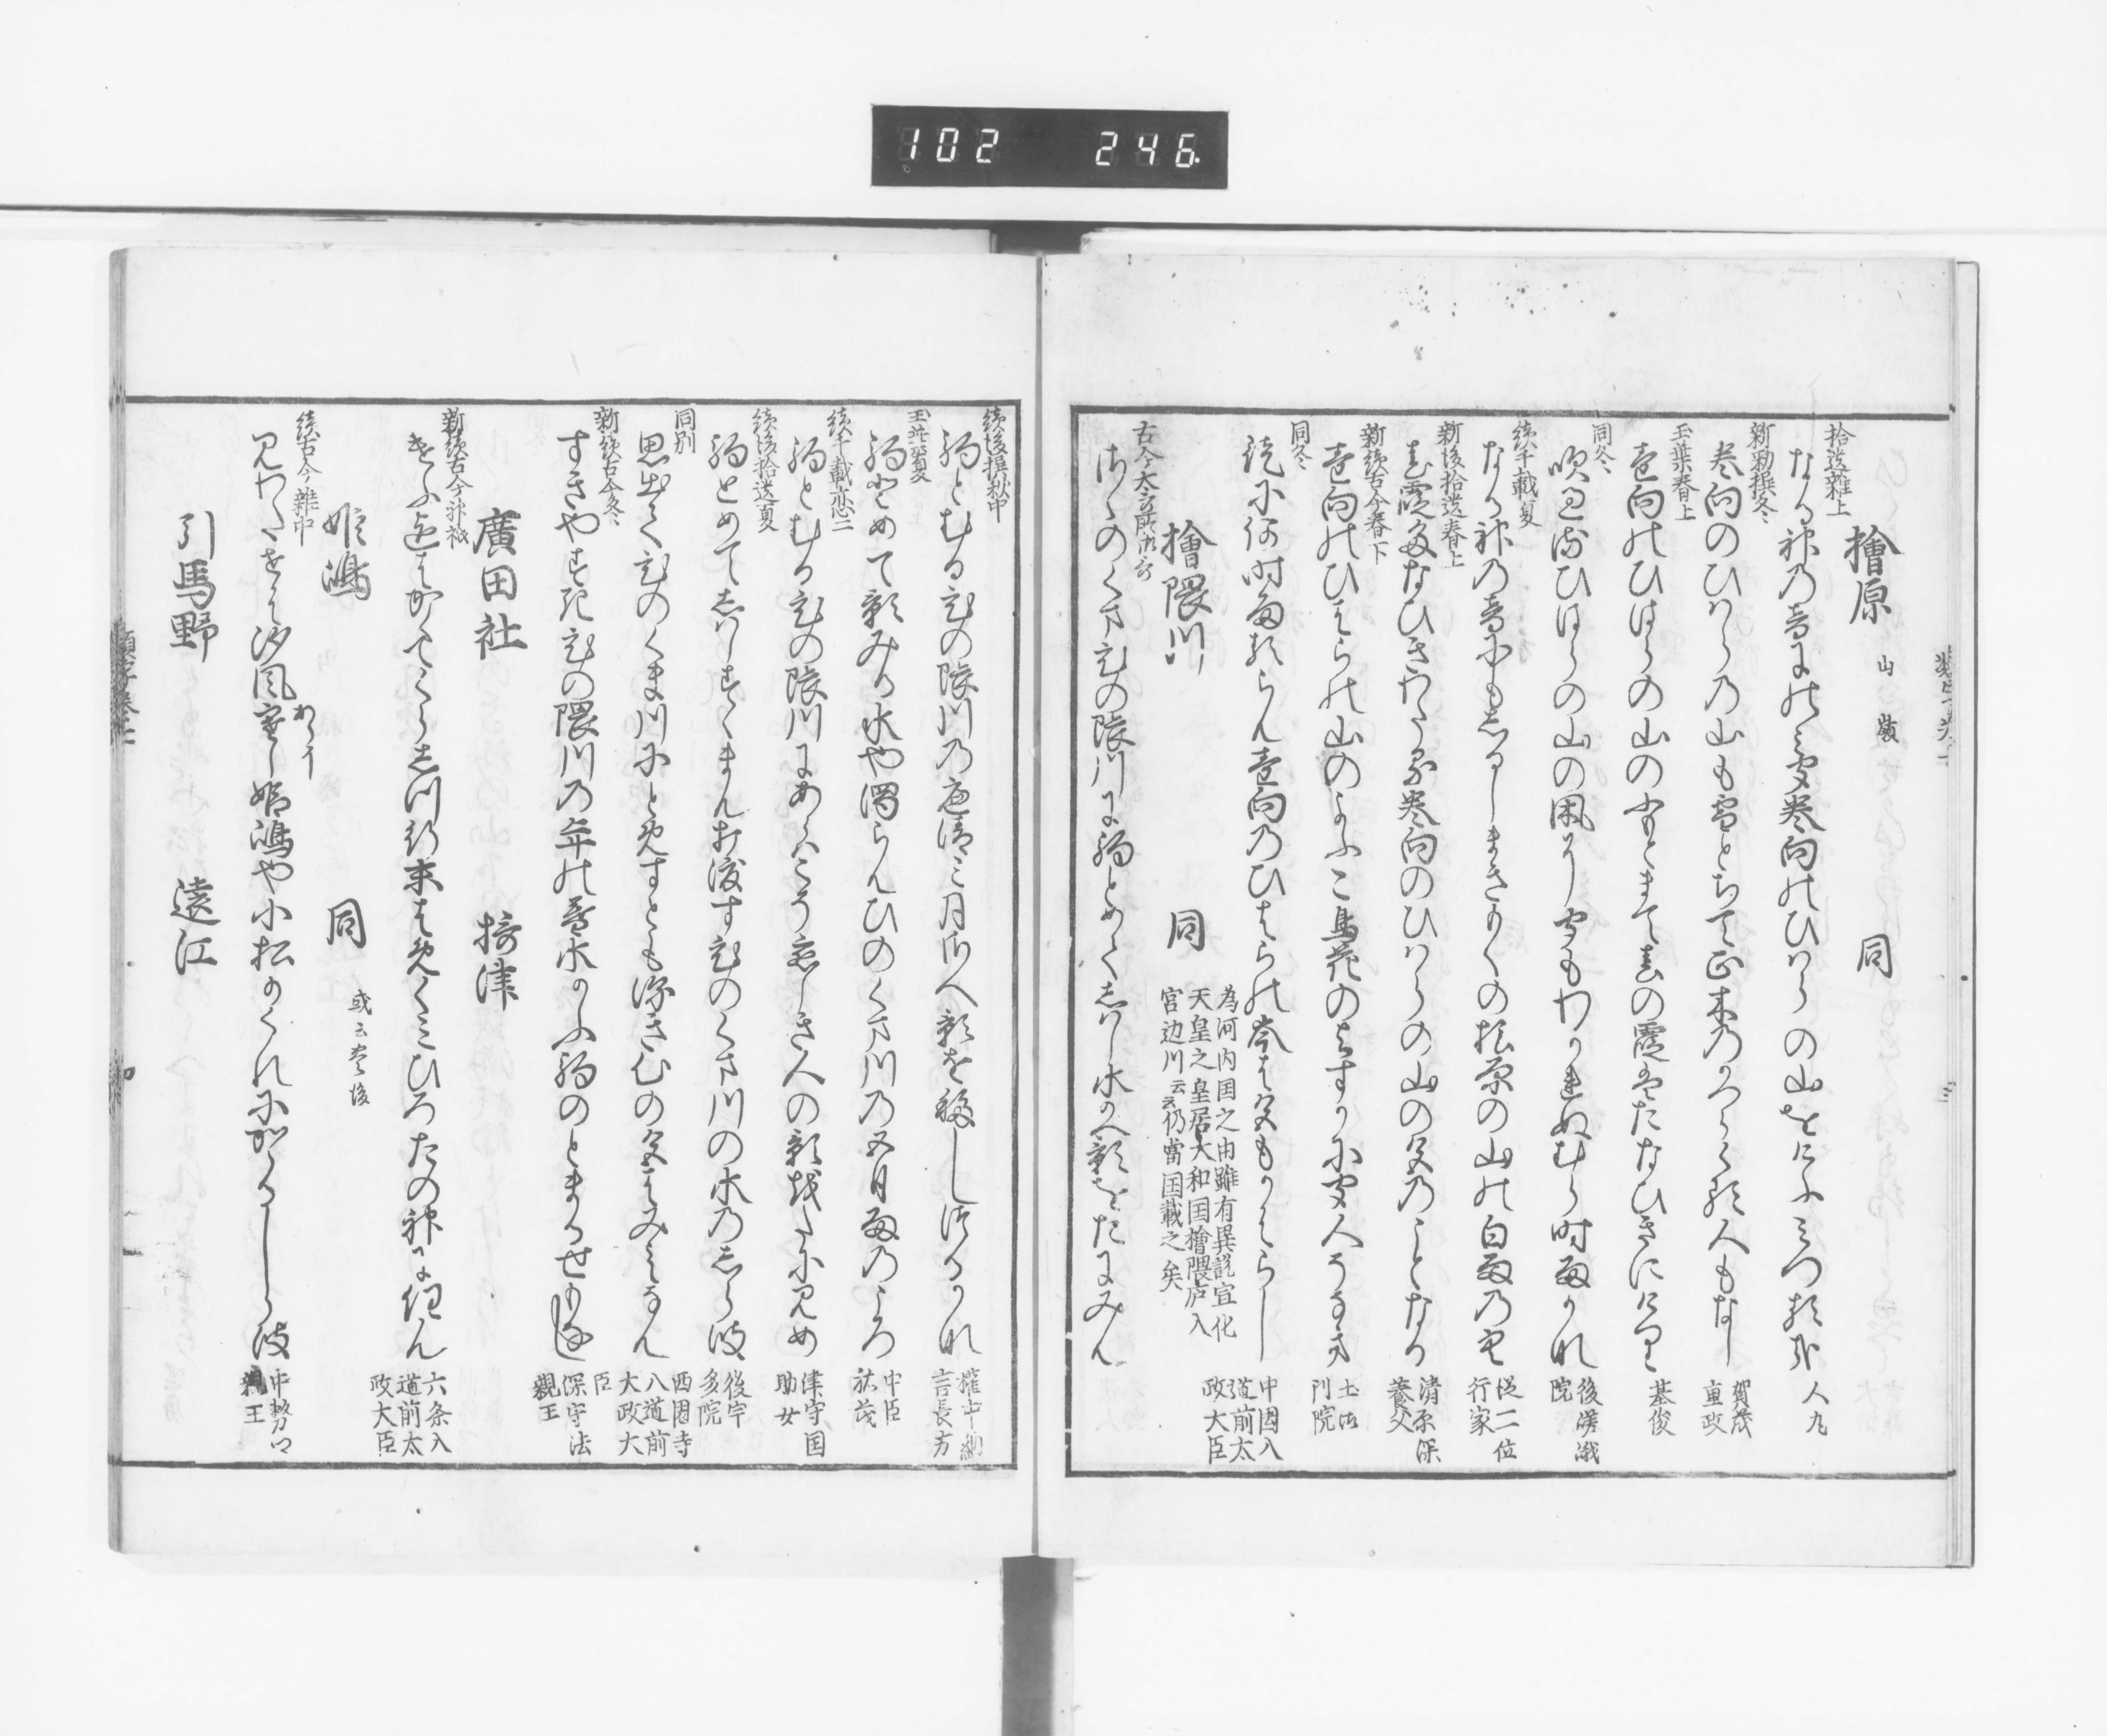 102 246
檜原 山 同
拾遺雑上
なる神の音にのみきく巻向のひはらの山をけふみつるかな 人丸
新勅撰冬
巻向のひはらの山も雪とちて正木のかつらくる人もなし 賀茂重政
玉葉春上
巻向のひはらの山のふもとまて春の霞はたなひきにけり 基俊
同冬
吹風もひはらの山の 雪もわかれぬむら時雨かな 後嵯峨院
続千載夏
なる神の音にもしるしまきもくの檜原の山の白雨の空 従二位行家
新後拾遺春上
春霞たなひきわたる巻向のひはらの山の色のことなる 清原深養父
新続古今春下
巻向のひはらの山のよふこ鳥花のよすかにきく人そなき 土御門院
同冬
いかに何時雨るらん巻向のひはらの峯は色もかはらし 中園入道前太政大臣
檜隈川 同
為河内国之由雖有異説宣化
天皇之皇居大和国檜隈庐入
宮辺川云云仍當国載之矣
古今大哥所御哥
さゝのくまひの隈川に駒とめてしはし水かへ影をたにみん
続後撰秋中
駒とむるひの隈川の底清み月さへ影を移しつるかな 権中納言長方
玉葉夏
駒とめて影みる水や濁らんひのくま川の五月雨のころ 中臣祐茂
続千載恋三
駒とむるひの隈川にあらはこそ恋しき人の影をたにみめ 津守国助女
続後拾遺夏
駒とめてしはしすゝまん打渡すひのくま川の水のしら波 後宇多院
同別
思出てひのくま川にとめすとも深き心の色はみえなん 西園寺入道前太政大臣
新続古今冬
すきやすきひの隈川の年の暮水かふ駒のとまるせもなし 深守法親王
廣田社 摂津
新続古今神祇
けふ迄はかくてくらしつ行末をめくみひろたの神に任ん 六条入道前太政大臣
姫嶋 同 或云豊後
続古今雑中
みわたせは汐風あらし姫嶋や小松かくれにかかるしら波 中務卿親王
引馬野 遠江